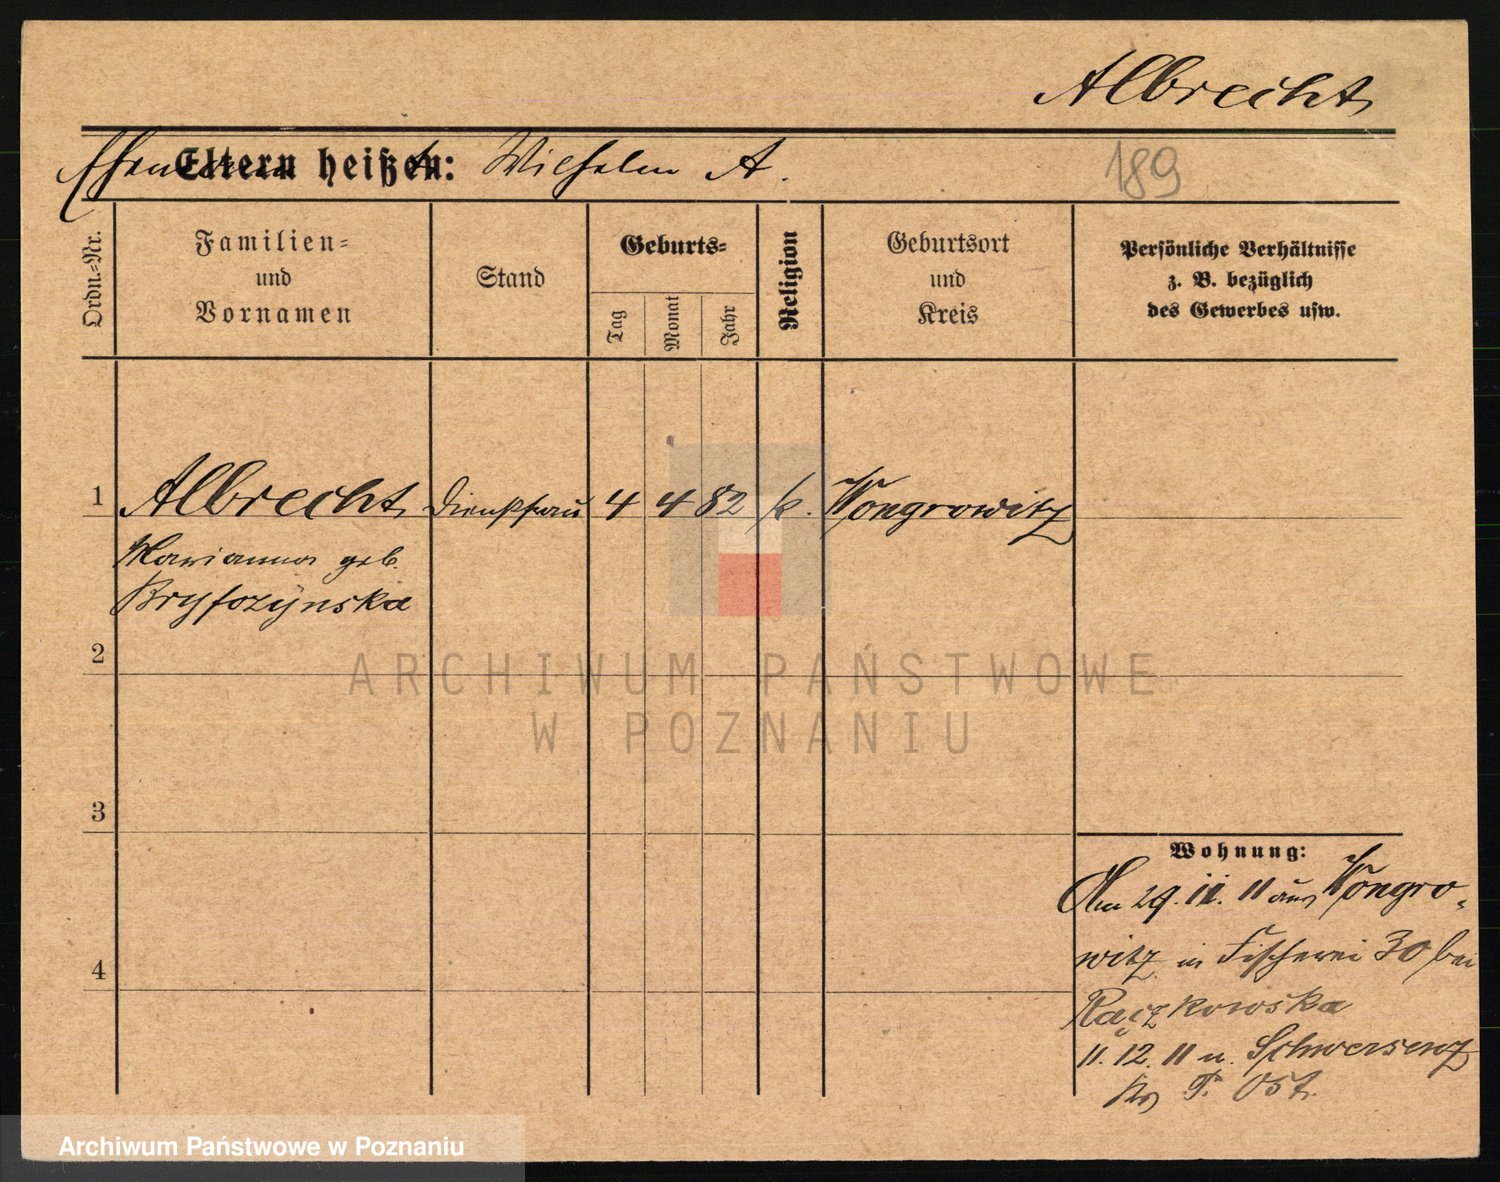 Albrecht
Eltern heißen: Wilhelm A.
189
Ordn.=Nr.
Familien=
und
Vornamen
Stand
Geburts=
Tag
Monat
Jahr
Religion
Geburtsort
und
Kreis
Persönliche Verhältnisse
z. B. bezüglich
des Gewerbes usw.
1 Albrecht 4 4 82 k. Wongrowitz
Marianna geb.
2
3
4
Wohnung:
Am 29. 11. 11 aus Wongro-
witz in Fischerei 30 bei
Rączkowska
11. 12. 11 n. Schwersenz
Krs P. Ost.
ARCHIWUM PAŃSTWOWE
W POZNANIU
Archiwum Państwowe w Poznaniu